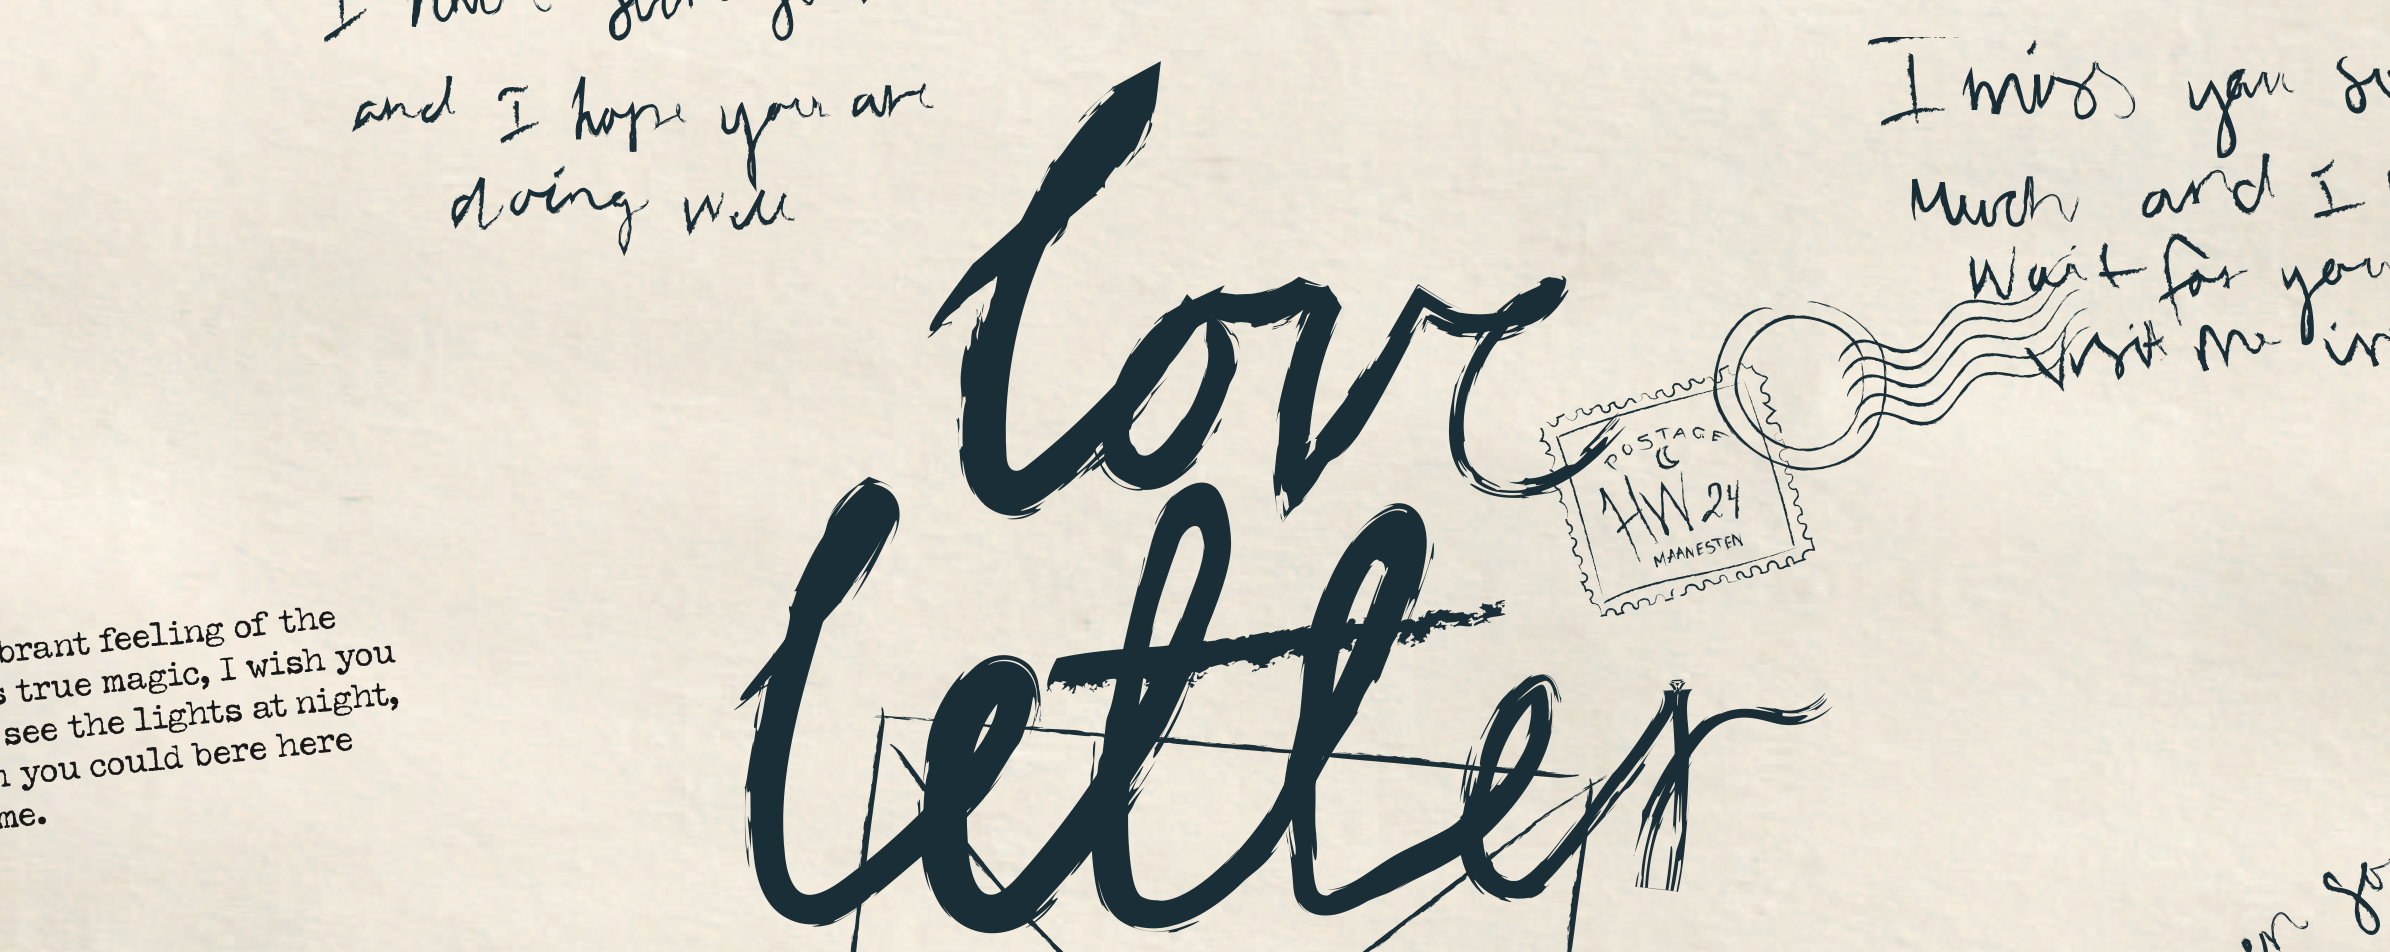 and I hope you are
doing well
I miss you so
Much and I
Wait for you
visit me in
love
letter
POSTAGE
HW 24
MAANESTEN
brant feeling of the
s true magic, I wish you
see the lights at night,
you could bere here
me.